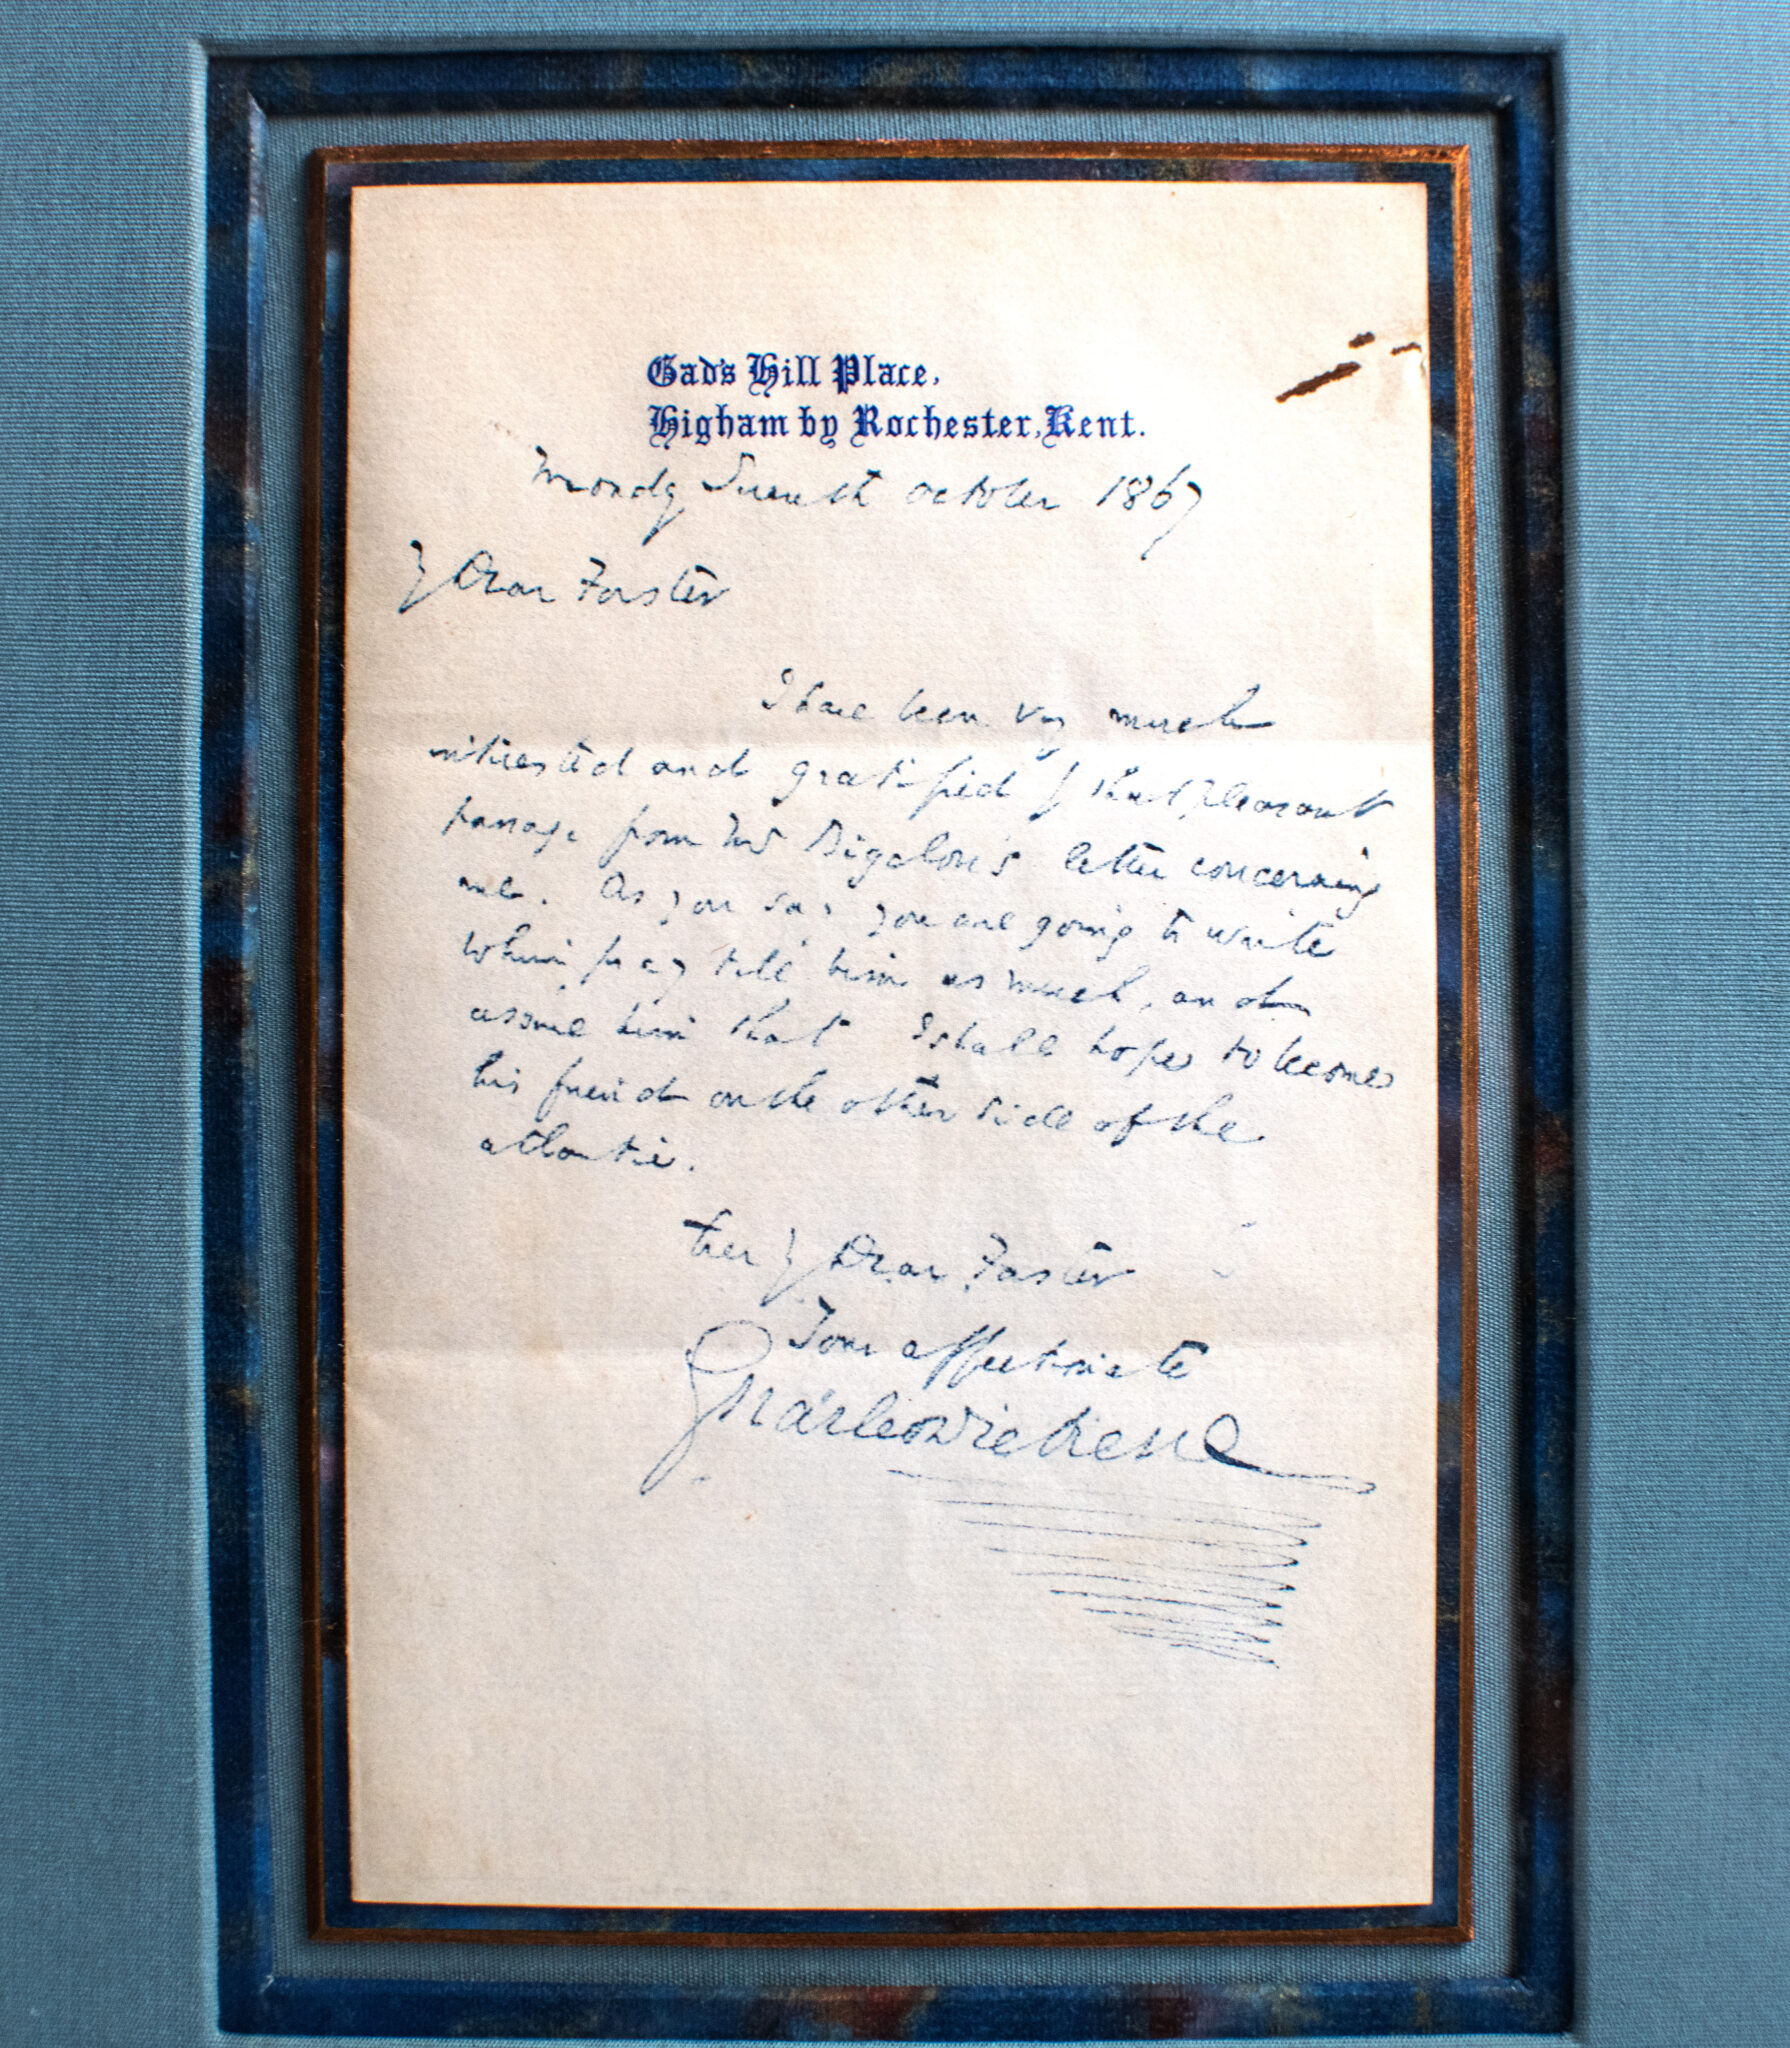 Gad's Hill Place,
Higham by Rochester, Kent.
Monday Seventh October 1867
My Dear Forster
I have been very much
interested and gratified by that pleasant
passage from Mr Bigelow's letter concerning
me. As you say you are going to write
to him pray tell him as much, and
assure him that I shall hope to become
his friend on the other side of the
atlantic.
Ever My Dear Forster
Your affectionate
Charles Dickens